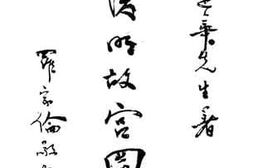 華先生著
明故宮圖
羅家倫敬